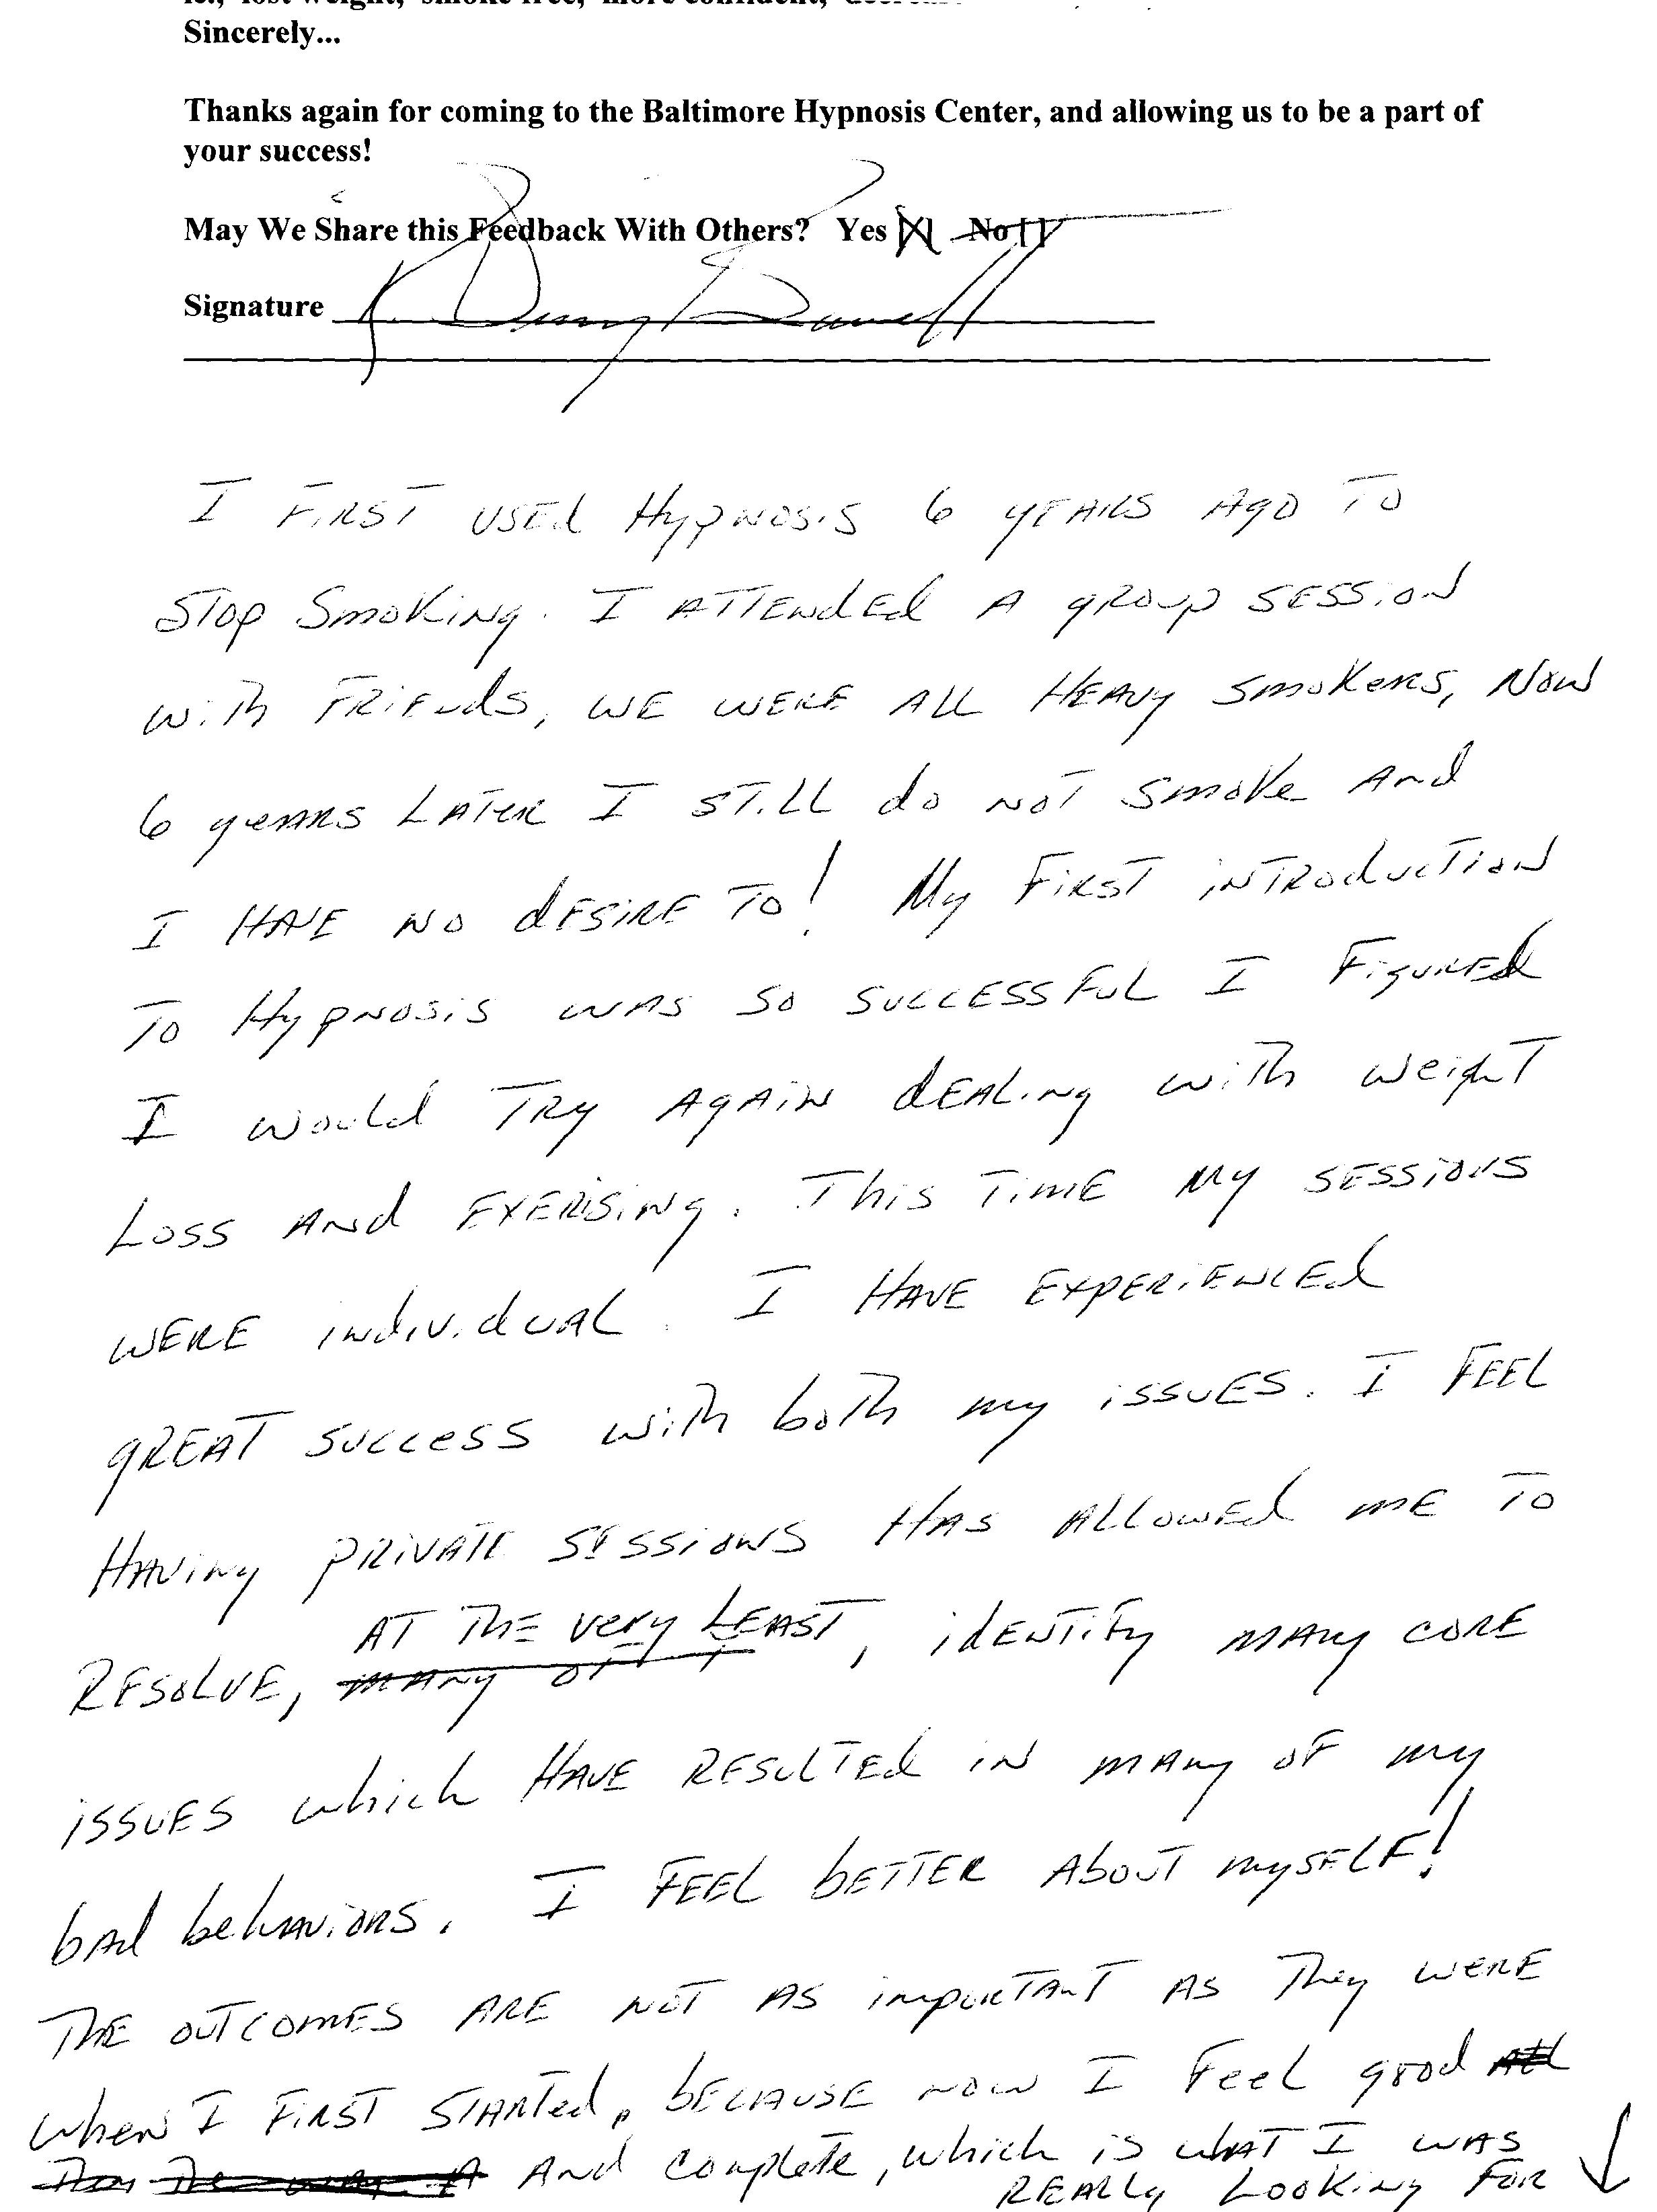 ie., lost weight, smoke free, more confident,
Sincerely...
Thanks again for coming to the Baltimore Hypnosis Center, and allowing us to be a part of
your success!
May We Share this Feedback With Others? Yes [X] No []
Signature
I FIRST USEd HypNosis 6 yEARS AgO TO
STOP SmoKiNg. I ATTENdEd A gROup SESSiON
WiTh FRiENds, WE WERE ALL HEAVy SmoKeRS, NOW
6 yeARS LATER I STiLL do NOT SmoKe ANd
I HAVE NO dESiRE TO! My FiRST iNTRoducTiON
TO HypNosiS WAS SO SUCCESSFUL I FiguREd
I Would TRy AgAiN dEALiNg WiTh WeighT
LOSS ANd EXERiSiNg. This TimE My SESSiONS
WERE iNdividUAL. I HAVE EXpERiENCEd
gREAT SUCCeSS WiTh boTh my iSSUES. I FEEL
HAViNg pRiVATE SESSiONS HAS ALLOWEd mE TO
AT ThE VeRy LEAST, idENTiFy mANy CORE
RESOLVE, mANy OF
iSSUES which HAVE RESULTEd iN mANy OF my
bAd behAViORS. I FEEL bETTER AbouT mySELF!
ThE OUTCOmES ARE NOT AS impORTANT AS ThEy WERE
WheN I FiRST STARTed, bECAUSE NOW I FeeL good
ANd COmpleTe, which iS whAT I WAS
REALLy LOOKiNg FOR